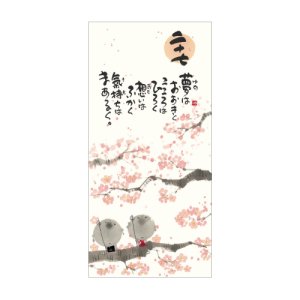 夢は
おおきく
こころは
ひろく
想いは
ふかく
氣持ちは
まあるく。